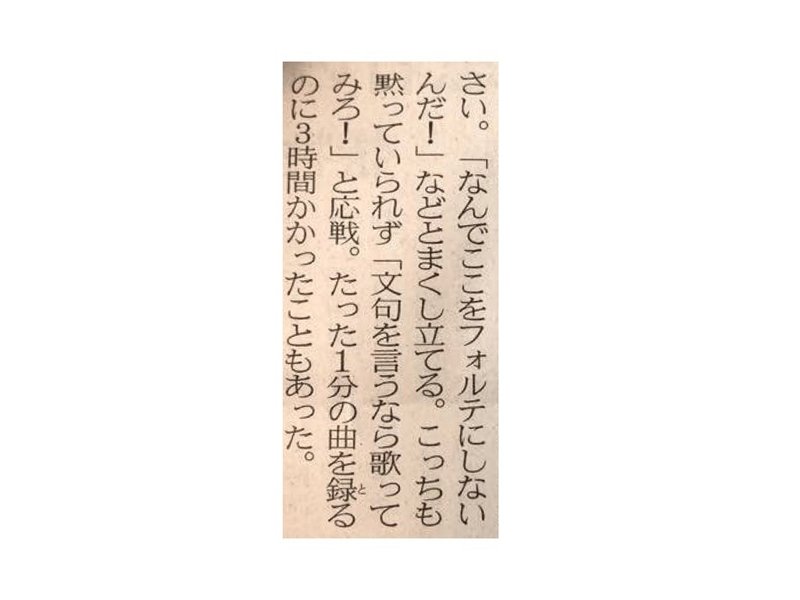 さい。「なんでここをフォルテにしない
んだ！」などとまくし立てる。こっちも
黙っていられず「文句を言うなら歌って
みろ！」と応戦。たった１分の曲を録る
のに３時間かかったこともあった。
と